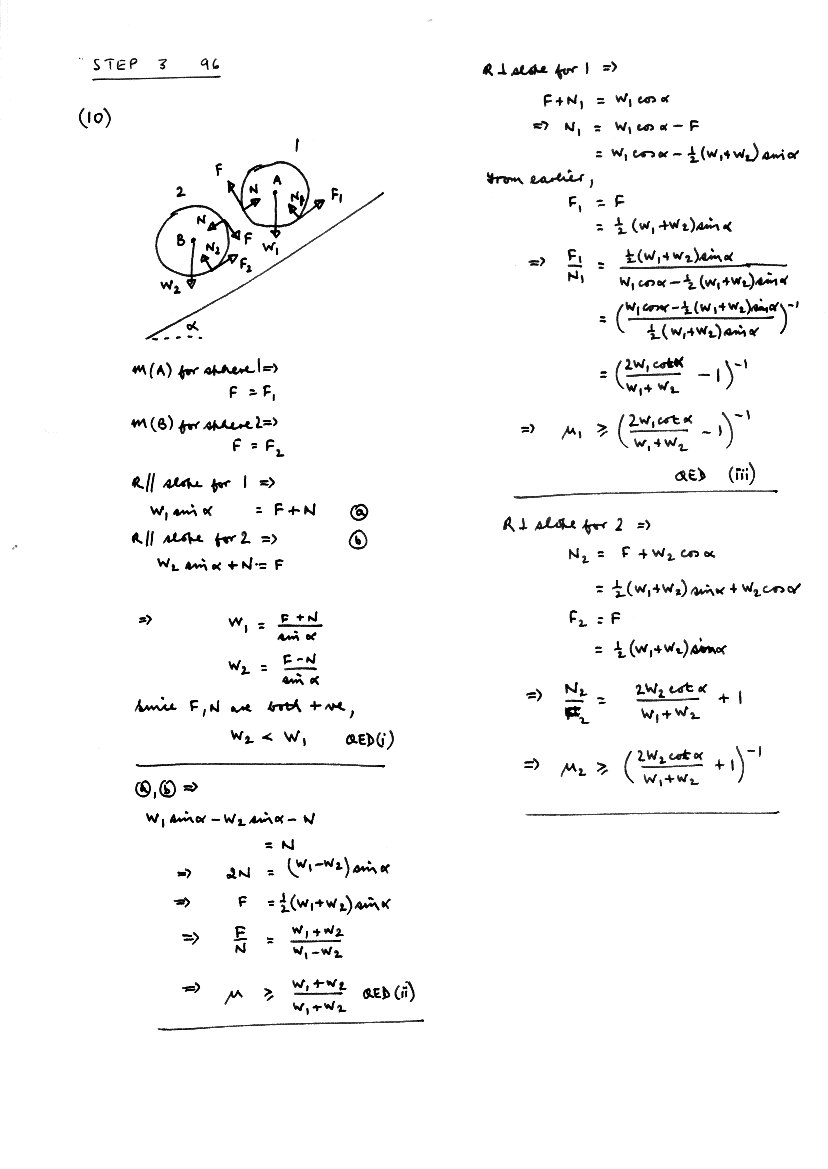 STEP 3 96
(10)
1
F
A
N
N₁
F₁
2
W₁
N
B
F
N₂
F₂
W₂
α
M(A) for sphere 1 =>
F = F₁
M(B) for sphere 2 =>
F = F₂
R// slope for 1 =>
W₁ sin α = F + N (a)
R// slope for 2 => (b)
W₂ sin α + N = F
=> W₁ = (F + N)/(sin α)
W₂ = (F - N)/(sin α)
since F, N are both +ve,
W₂ < W₁ QED (i)
(a), (b) =>
W₁ sin α - W₂ sin α - N
= N
=> 2N = (W₁ - W₂) sin α
=> F = ½(W₁ + W₂) sin α
=> F/N = (W₁ + W₂)/(W₁ - W₂)
=> μ ≥ (W₁ + W₂)/(W₁ + W₂) QED (ii)
R ⊥ slope for 1 =>
F + N₁ = W₁ cos α
=> N₁ = W₁ cos α - F
= W₁ cos α - ½(W₁ + W₂) sin α
From earlier,
F₁ = F
= ½(W₁ + W₂) sin α
=> F₁/N₁ = (½(W₁ + W₂) sin α)/(W₁ cos α - ½(W₁ + W₂) sin α)
= ((W₁ cos α - ½(W₁ + W₂) sin α)/(½(W₁ + W₂) sin α))⁻¹
= ((2W₁ cot α)/(W₁ + W₂) - 1)⁻¹
=> μ₁ ≥ ((2W₁ cot α)/(W₁ + W₂) - 1)⁻¹
QED (iii)
R ⊥ slope for 2 =>
N₂ = F + W₂ cos α
= ½(W₁ + W₂) sin α + W₂ cos α
F₂ = F
= ½(W₁ + W₂) sin α
=> N₂/F₂ = (2W₂ cot α)/(W₁ + W₂) + 1
=> μ₂ ≥ ((2W₂ cot α)/(W₁ + W₂) + 1)⁻¹